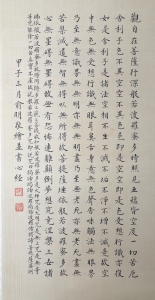 觀自在菩薩行深般若波羅蜜多時照見五蘊皆空度一切苦厄
舍利子色不異空空不異色色即是空空即是色受想行識亦復
如是舍利子是諸法空相不生不滅不垢不淨不增不減是故空
中無色無受想行識無眼耳鼻舌身意無色聲香味觸法無眼界
乃至無意識界無無明亦無無明盡乃至無老死亦無老死盡無
苦集滅道無智亦無得以無所得故菩提薩埵依般若波羅蜜多故
心無罣礙無罣礙故無有恐怖遠離顛倒夢想究竟涅槃三世諸
佛依般若波羅蜜多故得阿耨多羅三藐三菩提故知般若波羅蜜多是大神咒是大明咒是無上咒是無等
等咒能除一切苦真實不虛故說般若波羅蜜多咒即說咒曰揭諦揭諦波羅揭諦波羅僧揭諦菩提薩婆訶
甲子三月俞明敬繪並書心經